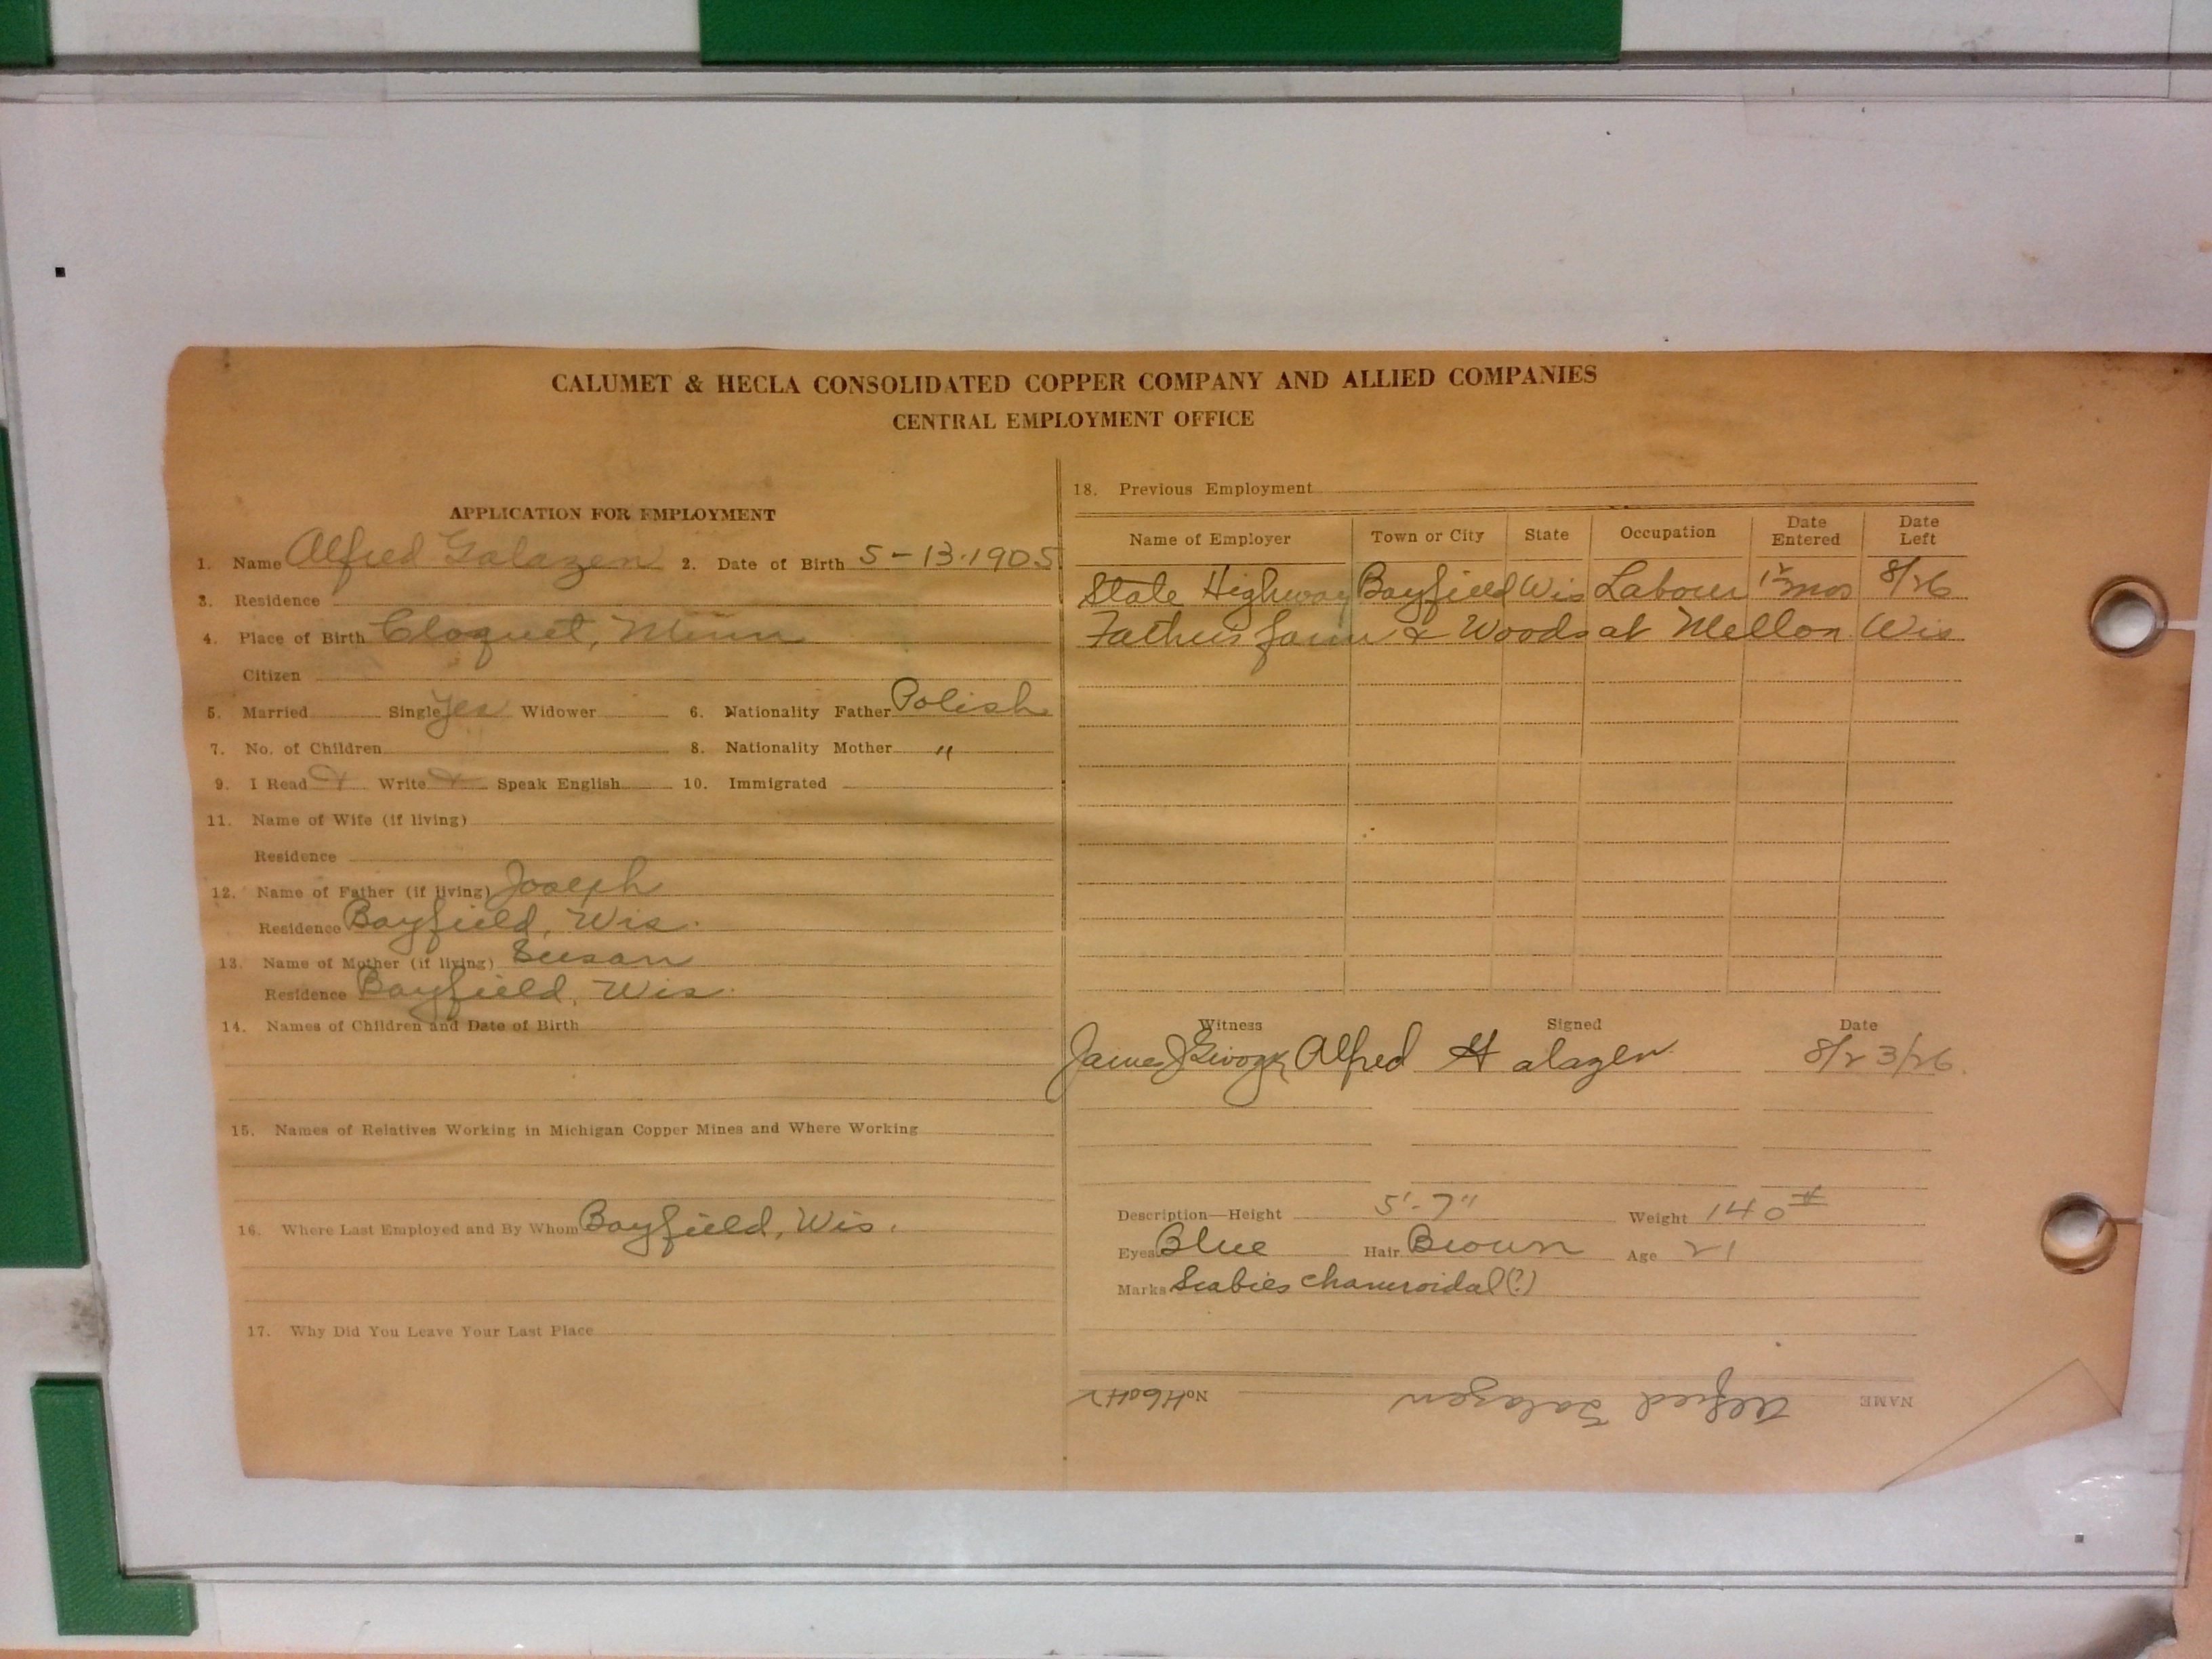 CALUMET & HECLA CONSOLIDATED COPPER COMPANY AND ALLIED COMPANIES
CENTRAL EMPLOYMENT OFFICE
APPLICATION FOR EMPLOYMENT
1. Name Alfred Galazen 2. Date of Birth 5-13-1905
3. Residence
4. Place of Birth Cloquet, Minn
Citizen
5. Married Single Yes Widower 6. Nationality Father Polish
7. No. of Children 8. Nationality Mother "
9. I Read & Write & Speak English 10. Immigrated
11. Name of Wife (if living)
Residence
12. Name of Father (if living) Joseph
Residence Bayfield, Wis.
13. Name of Mother (if living) Susan
Residence Bayfield, Wis.
14. Names of Children and Date of Birth
15. Names of Relatives Working in Michigan Copper Mines and Where Working
16. Where Last Employed and By Whom Bayfield, Wis.
17. Why Did You Leave Your Last Place
18. Previous Employment
Name of Employer Town or City State Occupation Date Entered Date Left
State Highway Bayfield Wis Labour mos 8/26
Father's farm & Woods at Mellon Wis
Witness Signed Date
James Alfred Galazen 8/23/26
Description—Height 5'-7" Weight 140#
Eyes Blue Hair Brown Age 21
Marks Scabies chancroidal(?)
NAME Alfred Galazen No.